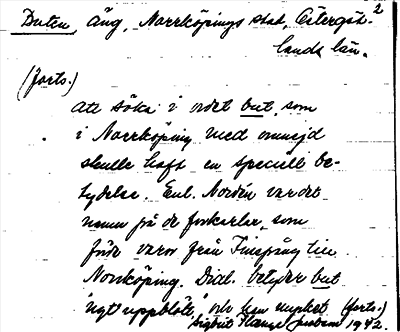 2
Buten, äng, Norrköpings stad, Östergöt-
lands län.
(forts.)
att söka i ordet but, som
i Norrköping med omnejd
skulle haft en speciell be-
tydelse. Enl. Nordén var det
namn på de forkarlar, som
före varor från Finspång till
Norrköping. Dial. betyder but
"ngt uppblött," och kan mycket (forts.)
1942.